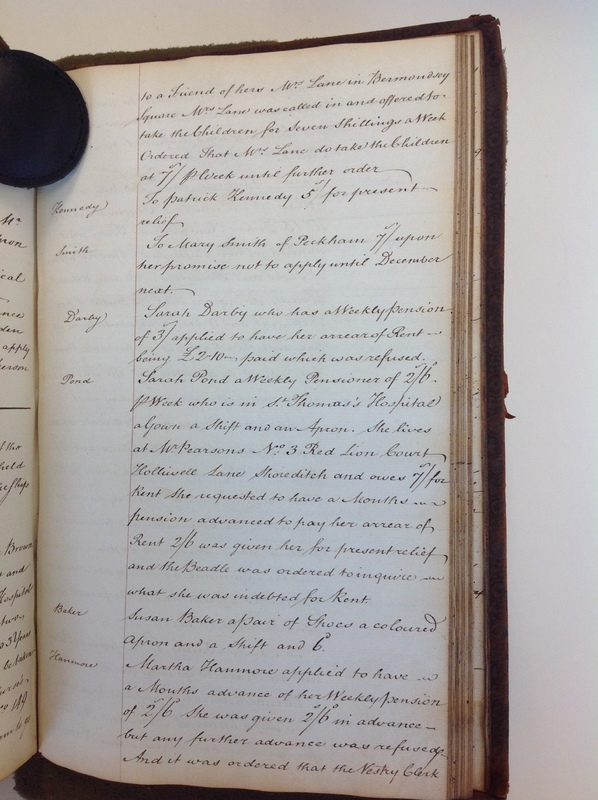 to a Friend of hers Mrs Lane in Bermondsey
Square Mrs Lane was called in and offered to
take the Children for Seven Shillings a Week
Ordered That Mrs Lane do take the Children
at 7/ P Week until further order
Kennedy
To Patrick Kennedy 5/ for present
relief
Smith
To Mary Smith of Peckham 7/ upon
her promise not to apply until December
next.
Darby
Sarah Darby who has a Weekly pension
of 3/ applied to have her arrear of Rent
being £2-10- paid which was refused.
Pond
Sarah Pond a Weekly Pensioner of 2/6.
P Week who is in St Thomas's Hospital
a Gown a Shift and an Apron. She lives
at Mr Pearsons No 3 Red Lion Court
Holliwell Lane Shoreditch and owes 7/ for
Rent She requested to have a Months
pension advanced to pay her arrear of
Rent 2/6 was given her for present relief
and the Beadle was ordered to inquire
what she was indebted for Rent.
Baker
Susan Baker a pair of Shoes a coloured
Apron and a Shift and 6.
Hanmore
Martha Hanmore applied to have
a Months advance of her Weekly pension
of 2/6 She was given 2/6 in advance
but any further advance was refused
And it was ordered that the Vestry Clerk
ical
apply
held
Brown
and
Hospital
two
3 Years
be taken
No 149